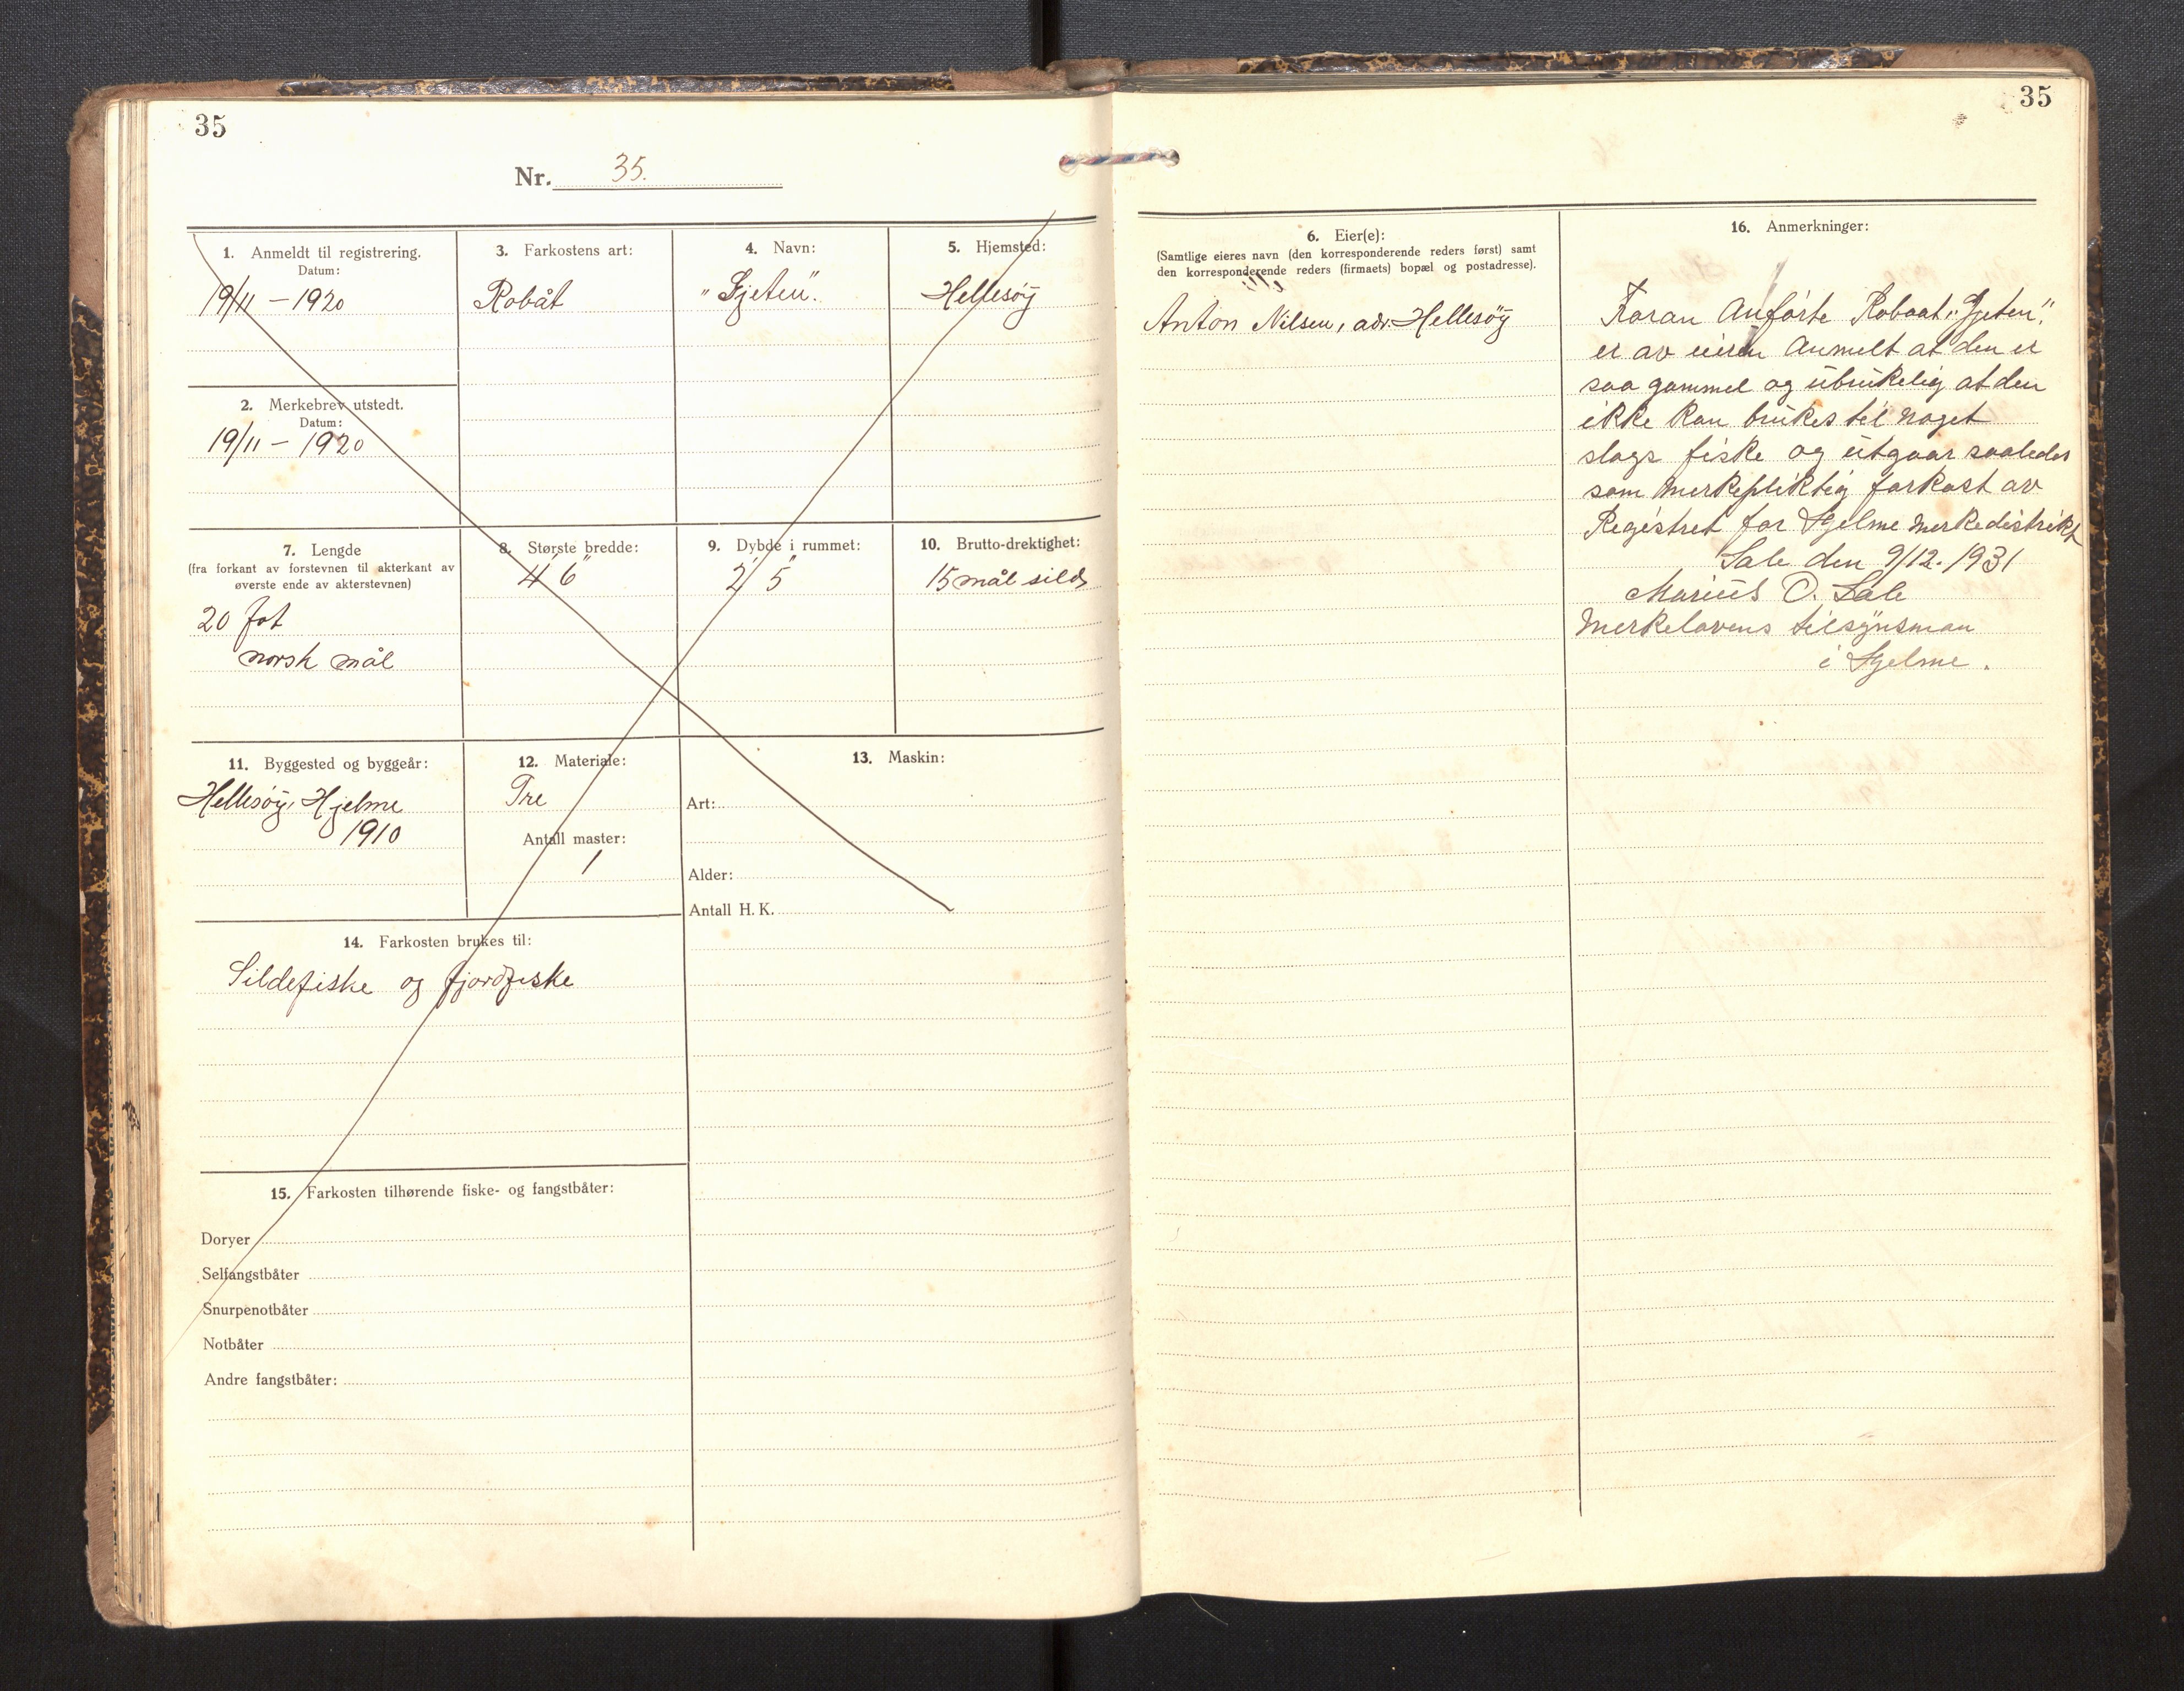 35
Nr. 35.
1. Anmeldt til registrering.
Datum:
19/11 – 1920
3. Farkostens art:
Robåt
4. Navn:
"Gjeten".
5. Hjemsted:
Hellesöy
2. Merkebrev utstedt.
Datum:
19/11 – 1920
7. Lengde
(fra forkant av forstevnen til akterkant av
øverste ende av akterstevnen)
20 fot
norsk mål
8. Største bredde:
4' 6"
9. Dybde i rummet:
2' 5"
10. Brutto-drektighet:
15 mål sild
11. Byggested og byggeår:
Hellesöy, Hjelme
1910
12. Materiale:
Tre
Antall master:
1
13. Maskin:
Art:
Alder:
Antall H. K.
14. Farkosten brukes til:
Sildefiske og fjordfiske
15. Farkosten tilhørende fiske- og fangstbåter:
Doryer
Selfangstbåter
Snurpenotbåter
Notbåter
Andre fangstbåter:
35
6. Eier(e):
(Samtlige eieres navn (den korresponderende reders først) samt
den korresponderende reders (firmaets) bopæl og postadresse).
Anton Nilsen, adr. Hellesöy
16. Anmerkninger:
Foran Anförte Robaat "Gjeten".
er av eieren Anmelt at den er
saa gammel og ubrukelig at den
ikke kan brukes til noget
slags fiske og utgaar saaledes
som merkepliktig farkost av
Registret for Hjelme merkedistrikt
Sale den 9/12. 1931
Marius O. Sale
Merkelovens tilsynsman
i Hjelme.